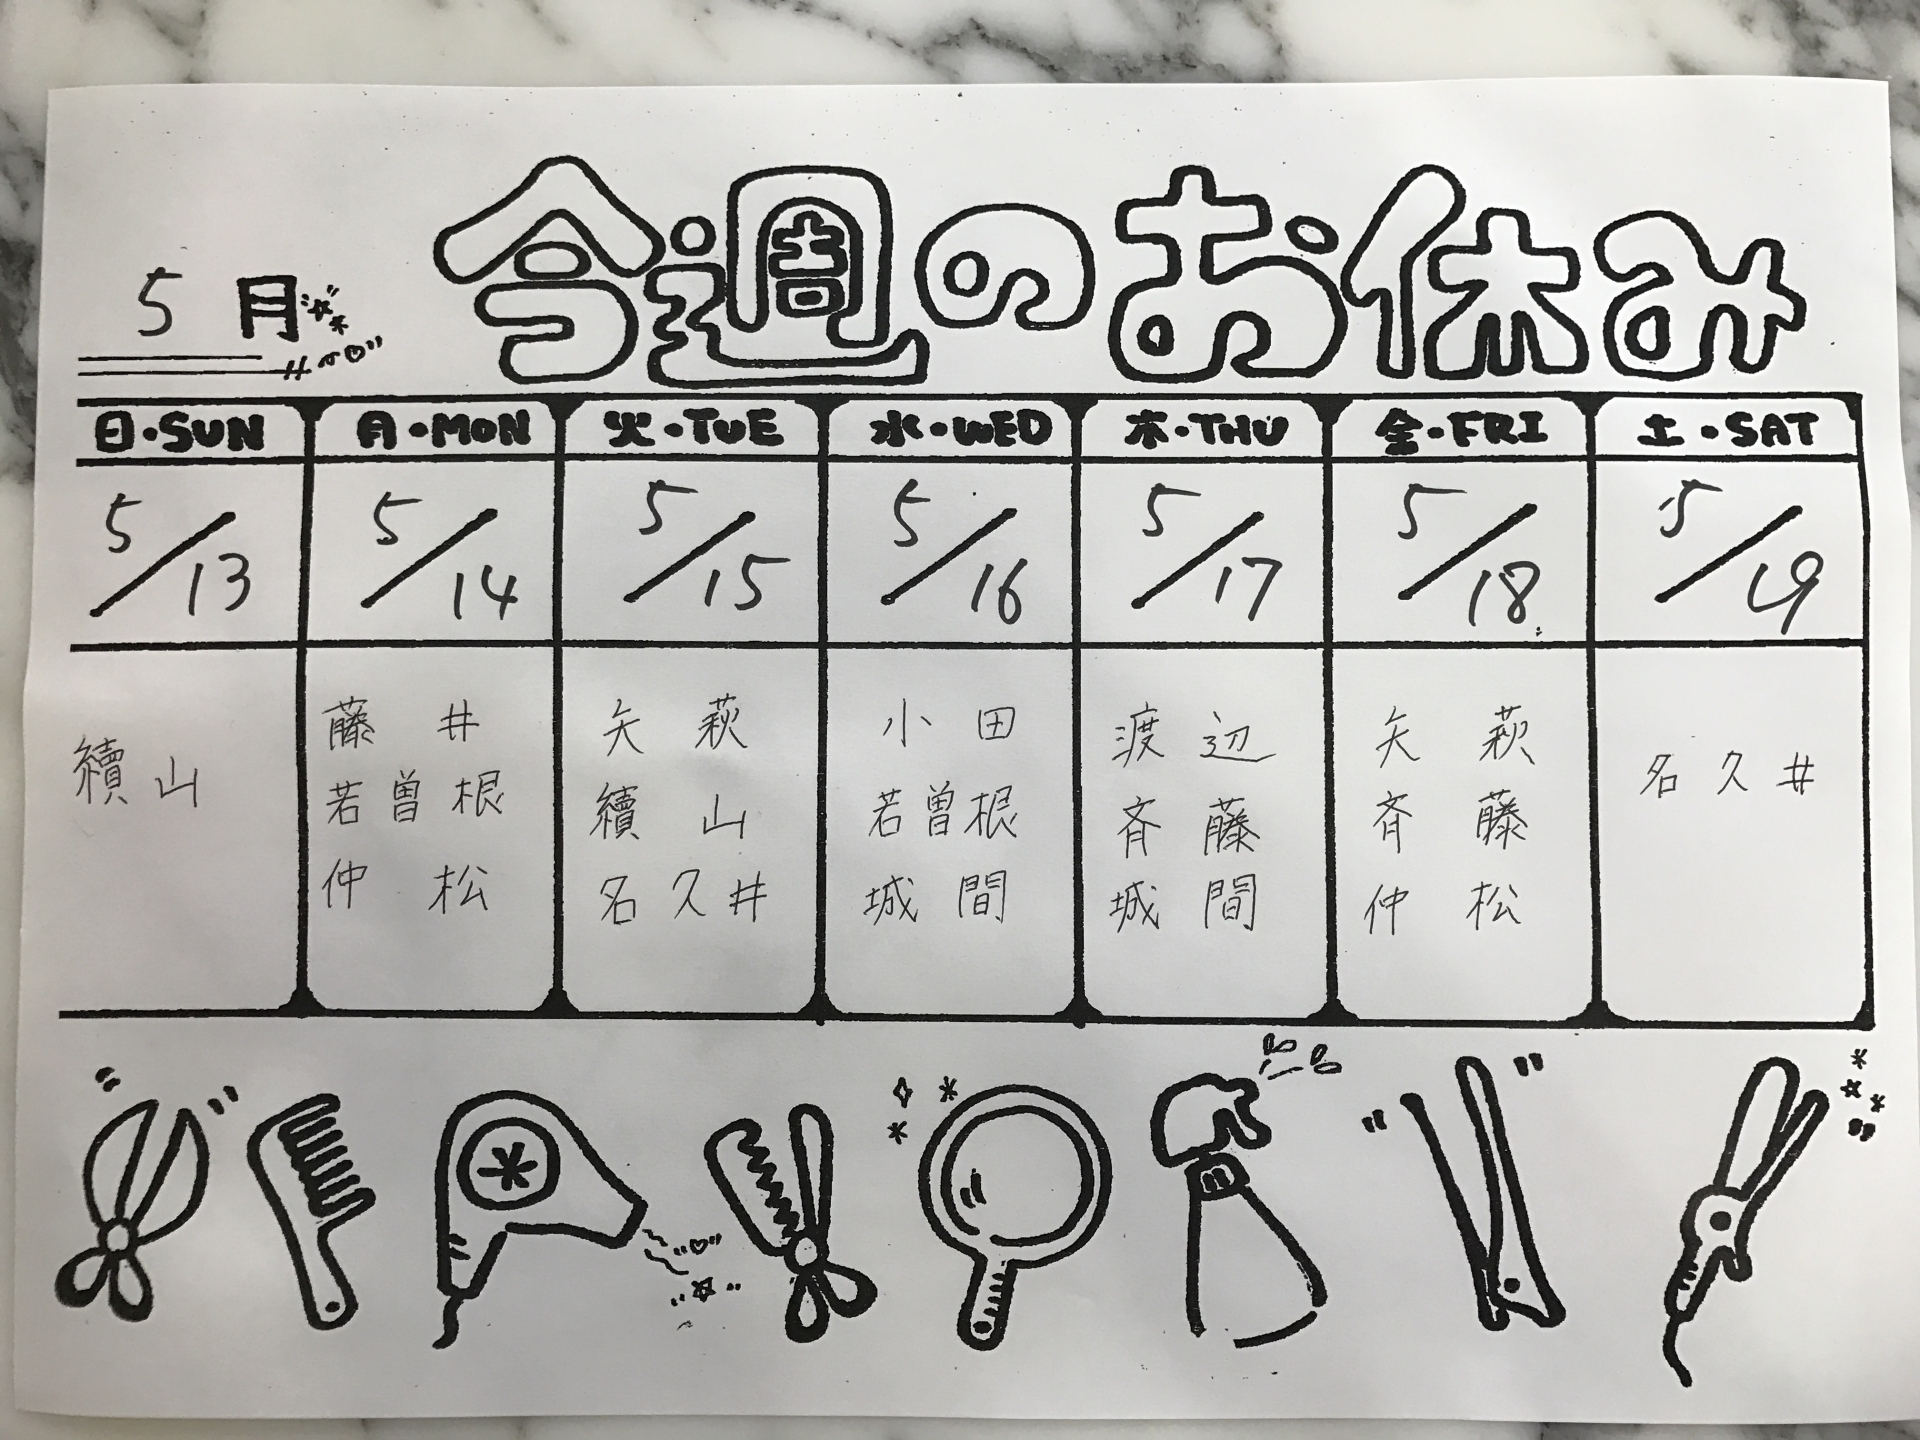 5月
今週のお休み
日・SUN 月・MON 火・TUE 水・WED 木・THU 金・FRI 土・SAT
5/13 5/14 5/15 5/16 5/17 5/18 5/19
續山
藤井
若曽根
仲松
矢萩
續山
名久井
小田
若曽根
城間
渡辺
斉藤
城間
矢萩
斉藤
仲松
名久井